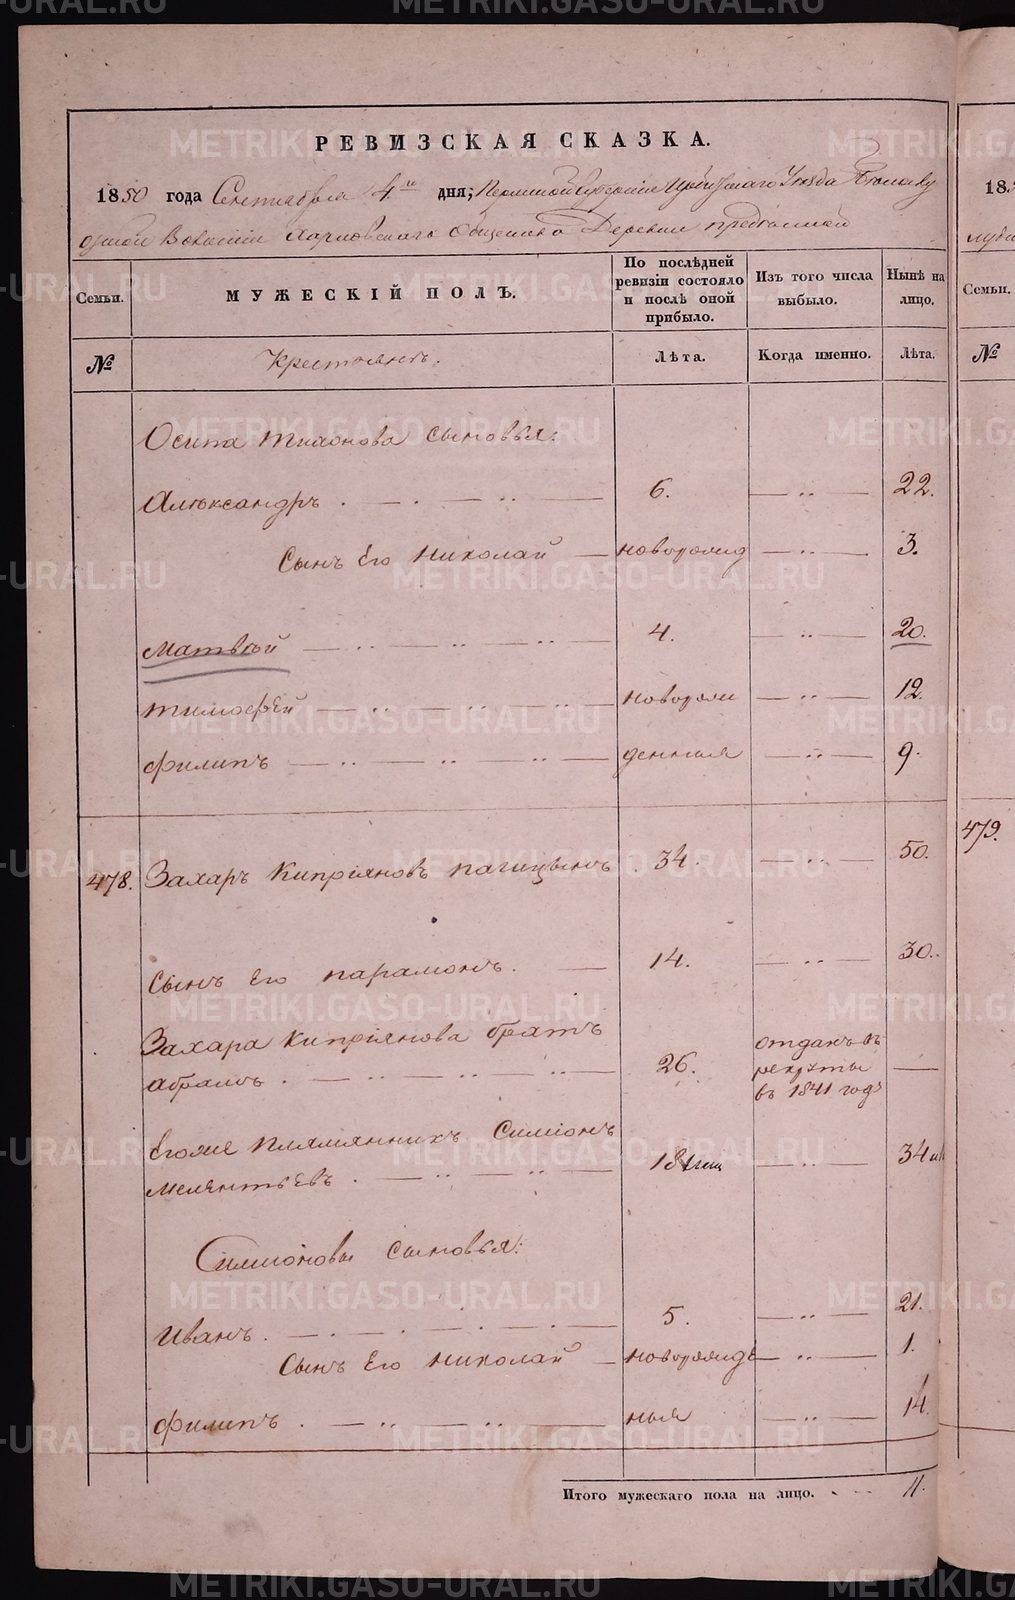 РЕВИЗСКАЯ СКАЗКА.
1850 года Сентября 4го дня, Пермской Губернiи Ирбитскаго Уезда
Волости Харловскаго Общества Деревни
Семьи.
МУЖЕСКIЙ ПОЛЪ.
По послѣдней ревизiи состояло и послѣ оной прибыло.
Изъ того числа выбыло.
Нынѣ на лицо.
№
Крестьянъ.
Лѣта.
Когда именно.
Лѣта.
Осипа Тихонова сыновья:
Александръ . — . — .. — 6. — .. — 22.
Сынъ Его Николай — новорожд — .. — 3.
Матвѣй — .. — .. — .. — 4. — .. — 20.
Тимофей — .. — .. — .. — новорож — .. — 12.
Филипъ — .. — .. — .. — денныя — .. — 9.
478. Захаръ Кипрiяновъ 34. — .. — 50.
Сынъ Его Парамонъ. — 14. — .. — 30.
Захара Кипрiянова братъ
Абрамъ . — .. — .. — .. — 26. отданъ въ рекруты въ 1841 годѣ —
Егоже племянникъ Симiонъ
Мелентьевъ . — .. — .. — 18 — .. — 34
Симiоновы сыновья:
Иванъ . — . — . — . — 5. — .. — 21.
Сынъ Его Николай — новорожде — .. — 1.
Филипъ . — .. — .. — ныя — .. — 14.
Итого мужескаго пола на лицо. - - - 11.
18
Семьи.
№
479.
METRIKI.GASO-URAL.RU